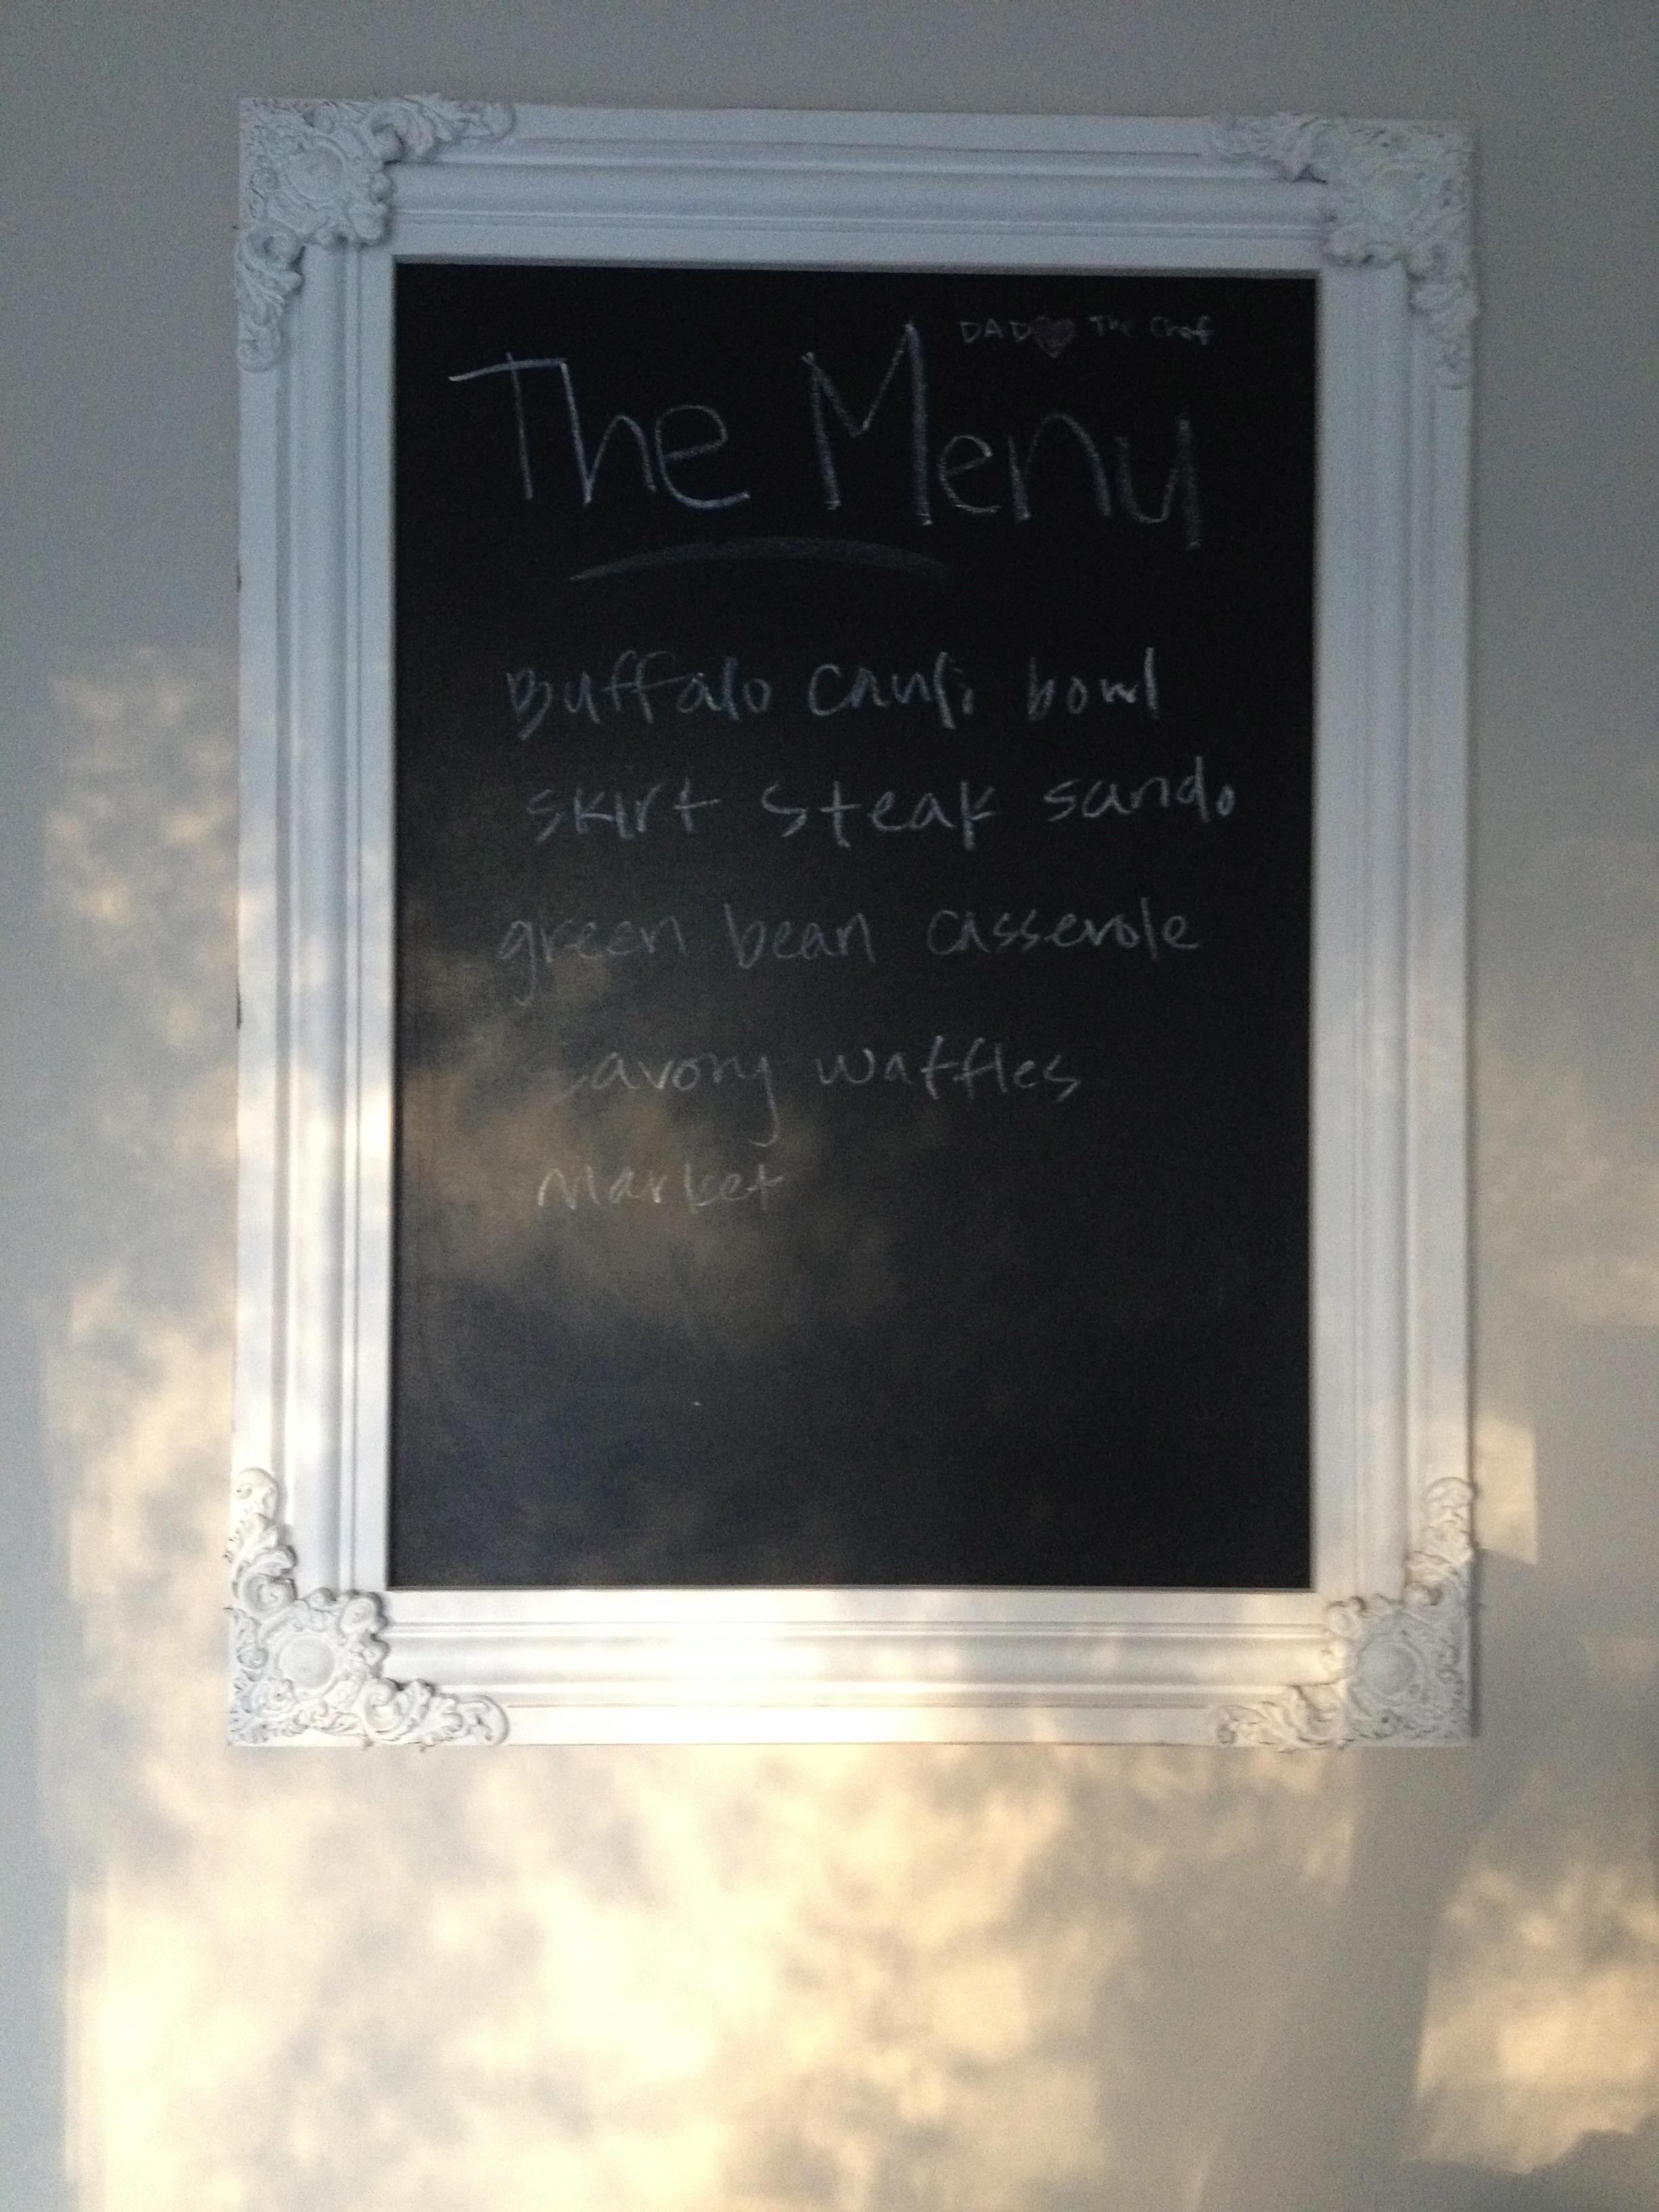 DAD The Chef
The Menu
Buffalo cauli bowl
skirt steak sando
green bean casserole
savory waffles
Market